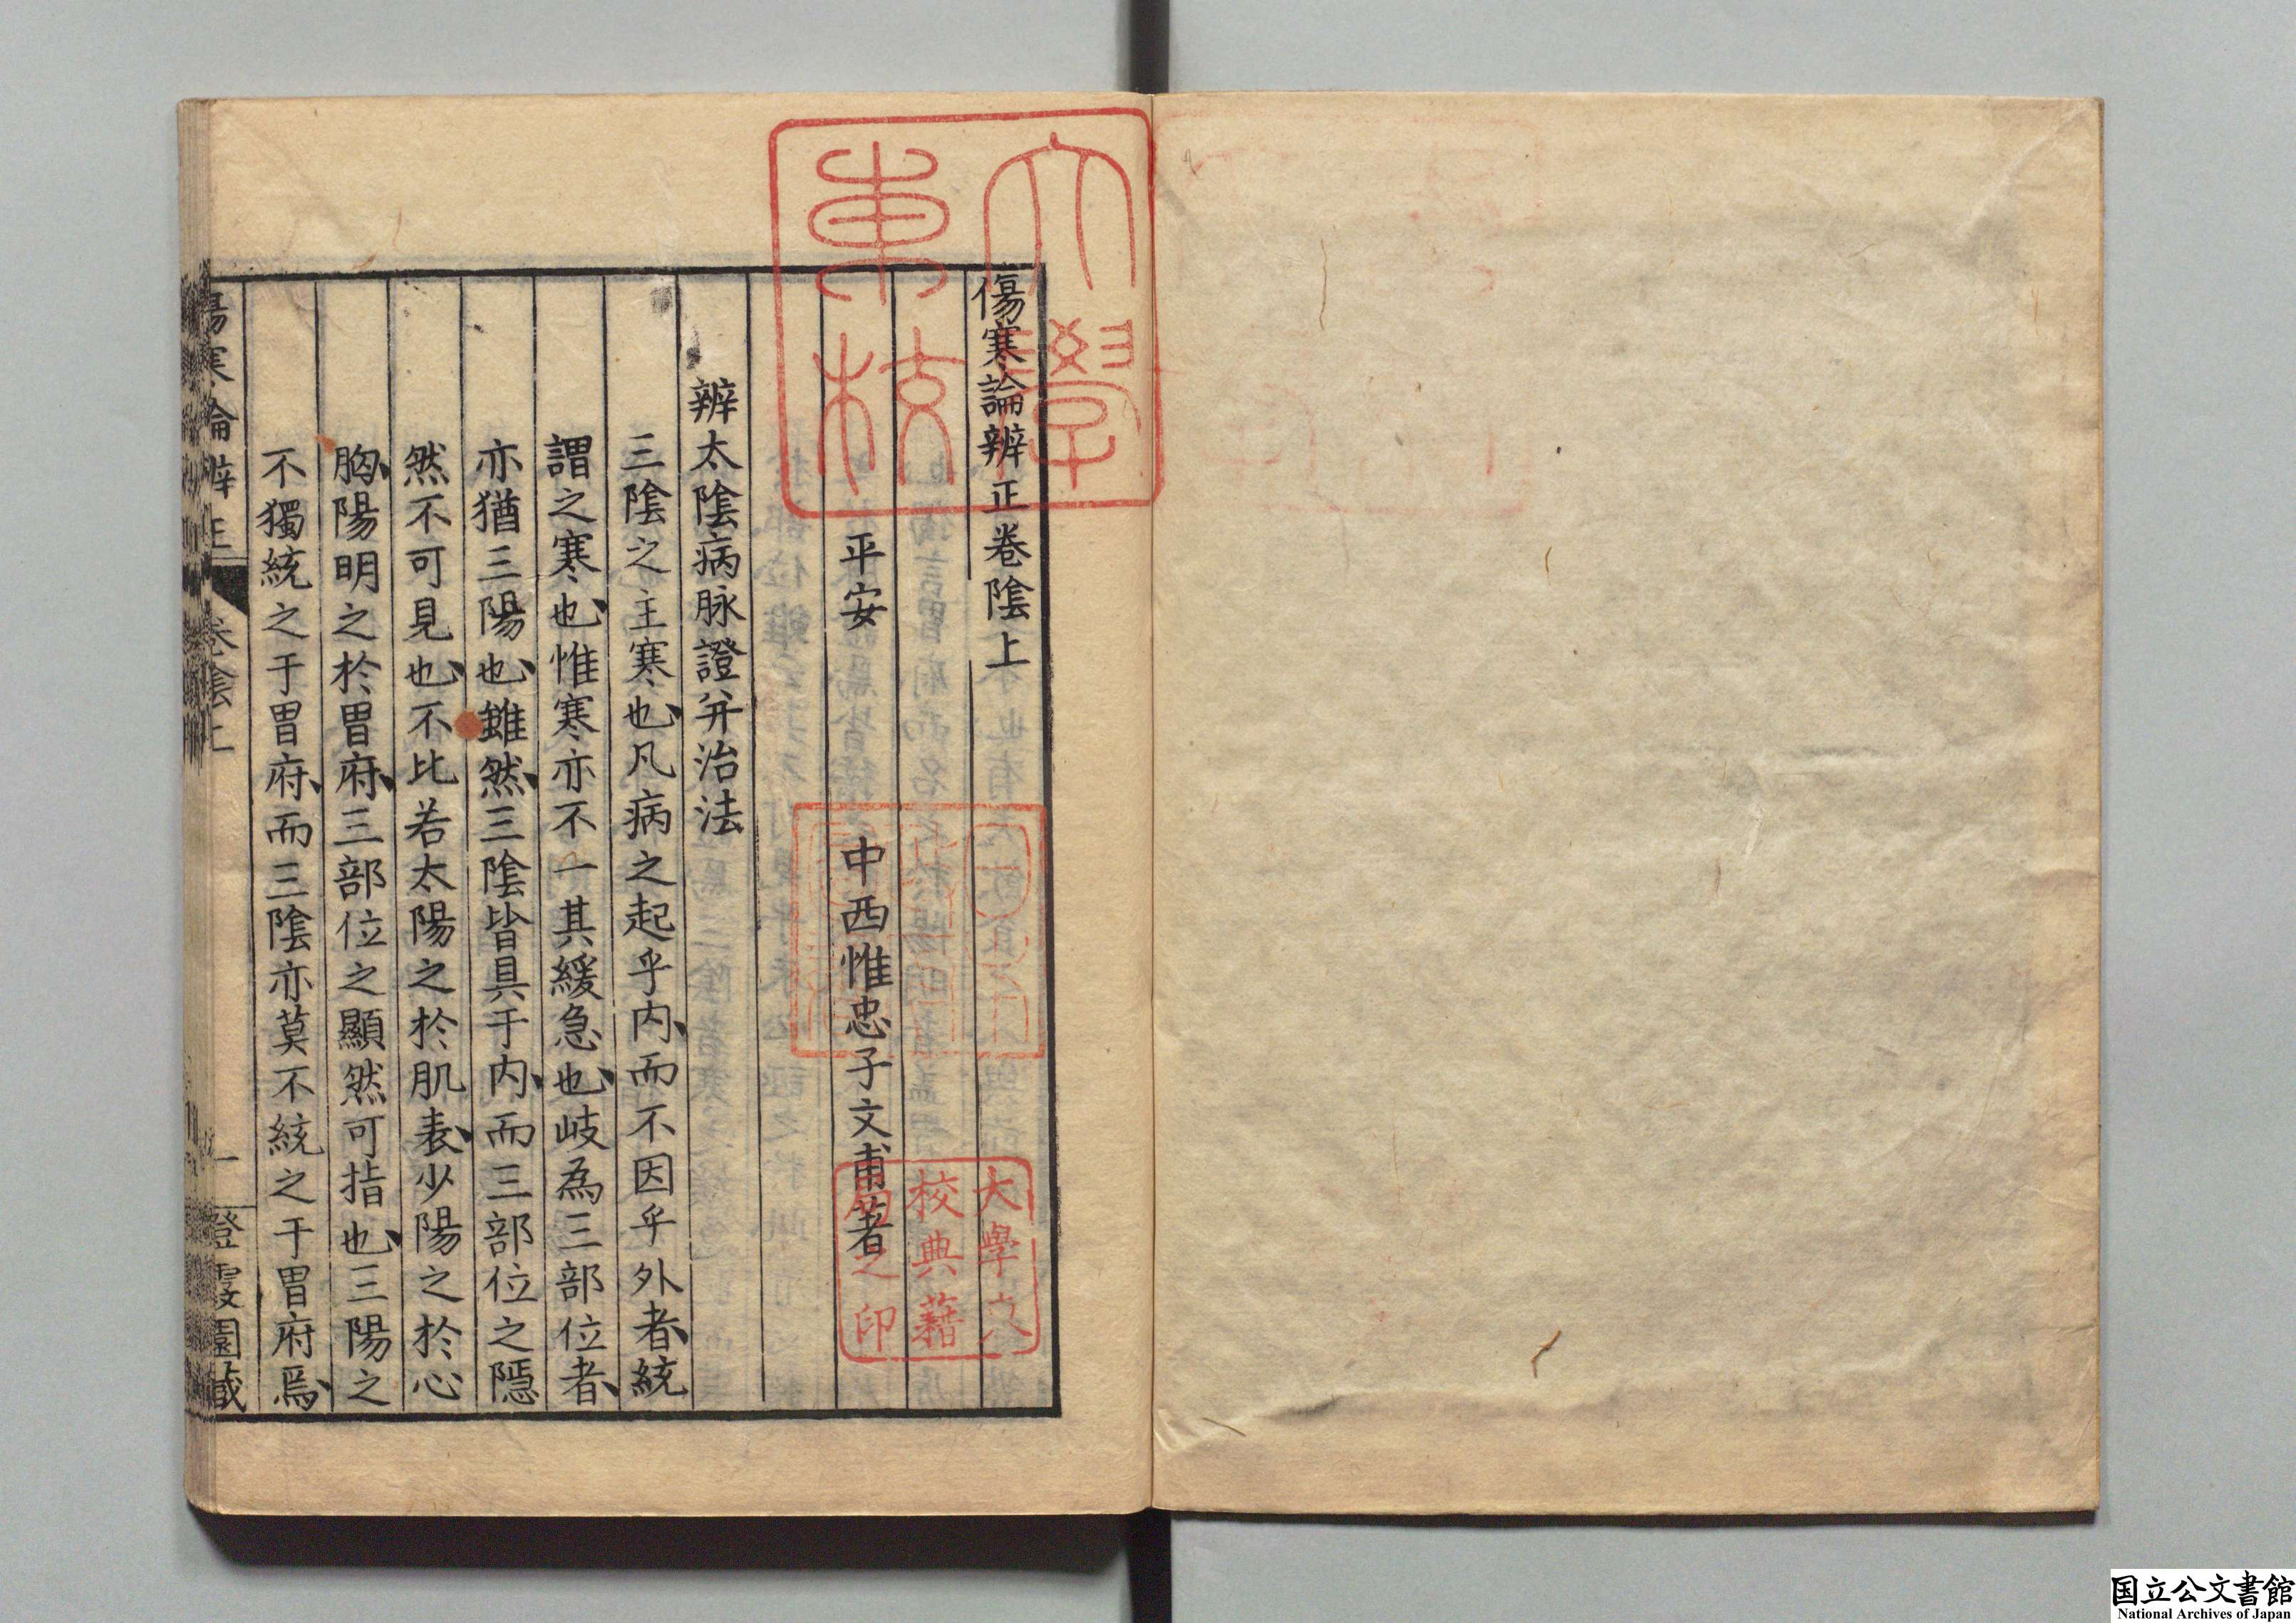 傷寒論辨正卷陰上
平安　中西惟忠子文甫著
辨太陰病脉證并治法
三陰之主寒也凡病之起乎内而不因乎外者統
謂之寒也惟寒亦不一其緩急也岐為三部位者
亦猶三陽也雖然三陰皆具于内而三部位之隱
然不可見也不比若太陽之於肌表少陽之於心
胸陽明之於胃府三部位之顯然可指也三陽之
不獨統之于胃府而三陰亦莫不統之于胃府焉
傷寒論辨正　卷陰上　一　登霞園藏
大學
東校
大學東
校典藉
局之印
国立公文書館
National Archives of Japan